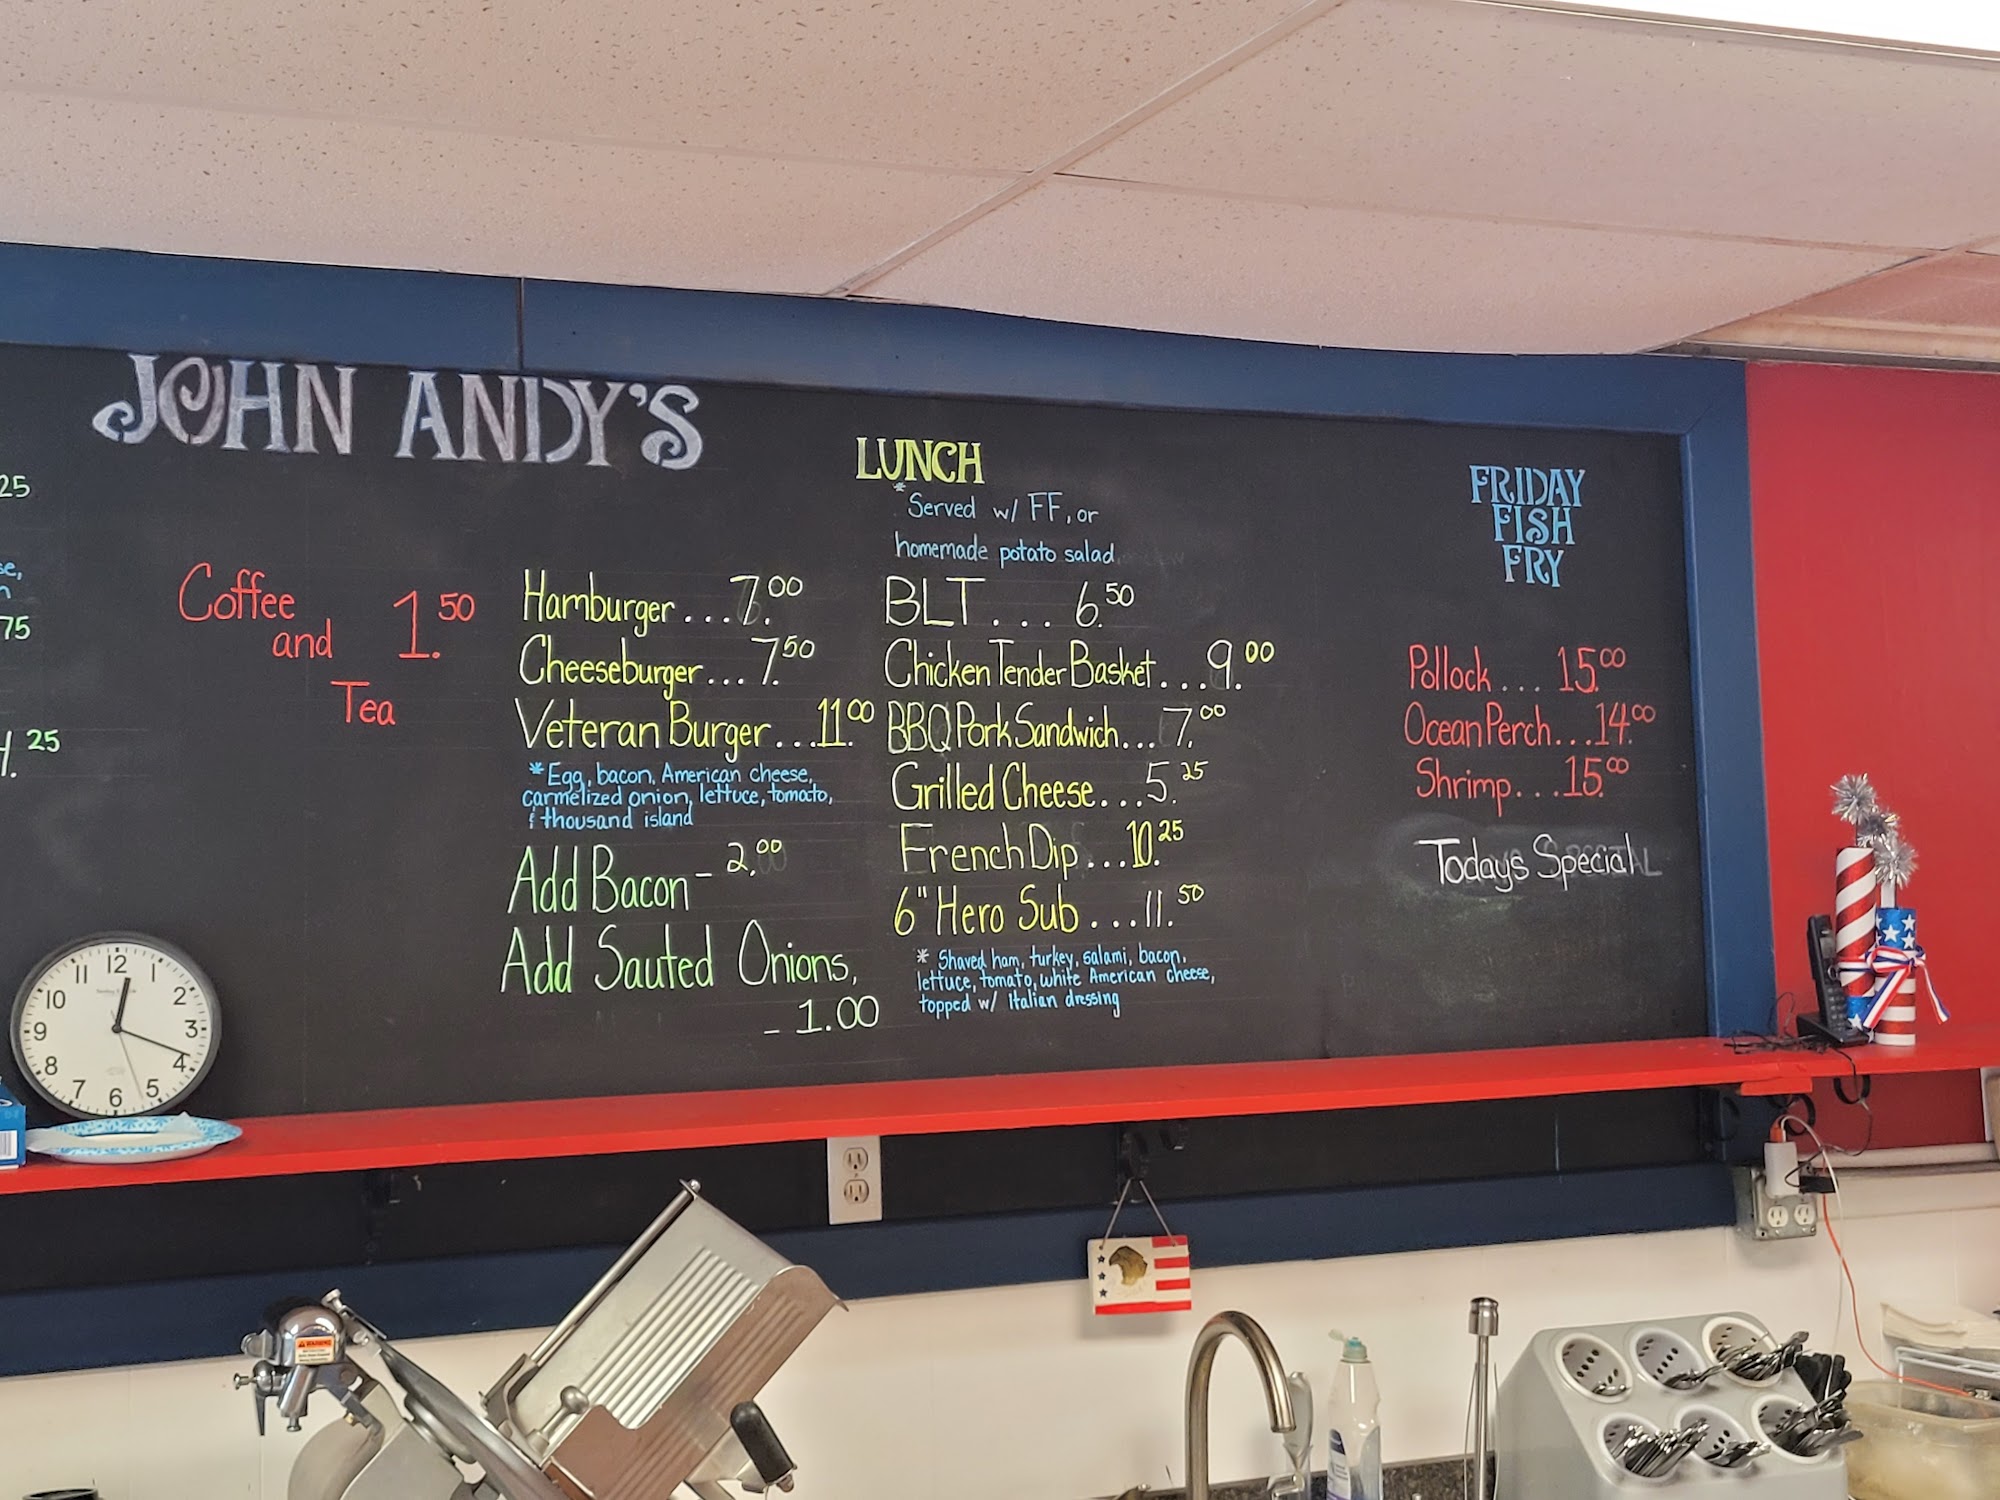 JOHN ANDY'S
25
se,
75
4.25
Coffee
and 1.50
Tea
Hamburger...7.00
Cheeseburger...7.50
Veteran Burger...11.00
*Egg, bacon, American cheese,
carmelized onion, lettuce, tomato,
& thousand island
Add Bacon - 2.00
Add Sauted Onions,
- 1.00
LUNCH
*Served w/ FF, or
homemade potato salad
BLT... 6.50
Chicken Tender Basket...9.00
BBQ Pork Sandwich...7.00
Grilled Cheese...5.25
French Dip...10.25
6" Hero Sub...11.50
* Shaved ham, turkey, salami, bacon,
lettuce, tomato, white American cheese,
topped w/ Italian dressing
FRIDAY
FISH
FRY
Pollock... 15.00
Ocean Perch...14.00
Shrimp...15.00
Today's Special
12
1
2
3
4
5
6
7
8
9
10
11
WARNING